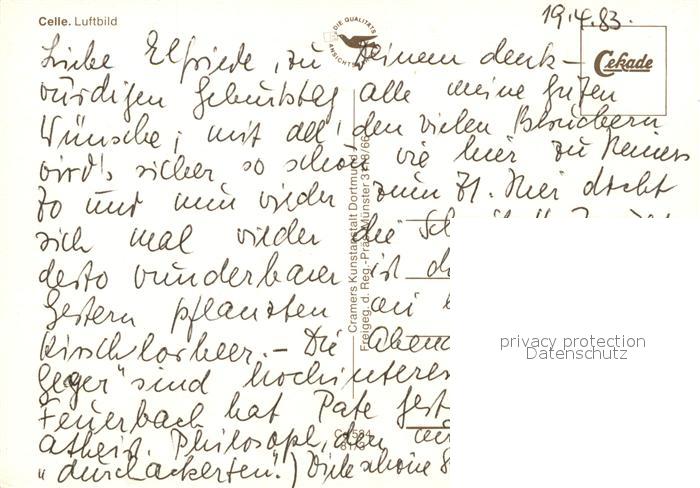 Celle. Luftbild
DIE QUALITÄTS
ANSICHTSKARTE
19.4.83.
Cekade
Liebe Elfriede, zu Deinem denk-
würdigen Geburtstag alle meine guten
Wünsche; mit all' den vielen Besuchern
wird's sicher so schön wie hier zu meinem
70 und nun wieder zum 71. Hier dreht
sich mal wieder die
desto wunderbarer ist
Gestern pflanzten wir
Kirschlorbeer. – Die Abend
Geger" sind hochinteres
Feuerbach hat Pate gest
atheist. Philosoph, den wir
"durchackerten".) Viele schöne
Cramers Kunstanstalt Dortmund
Freigeg. d. Reg.-Präs. Münster
privacy protection
Datenschutz